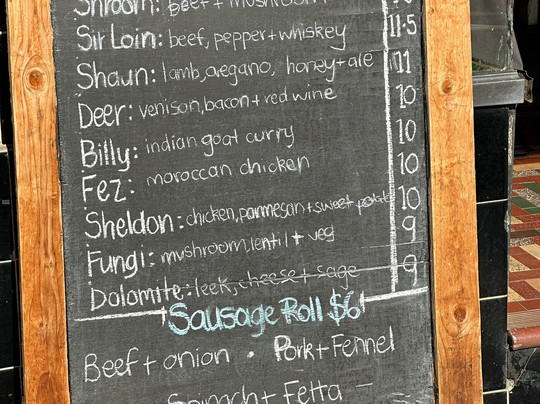 Shroom: beef + mushroom
Sir Loin: beef, pepper + whiskey 11.5
Shaun: lamb, oregano, honey + ale 11
Deer: venison, bacon + red wine 10
Billy: indian goat curry 10
Fez: moroccan chicken 10
Sheldon: chicken, parmesan + sweet potato 10
Fungi: mushroom, lentil + veg 9
Dolomite: leek, cheese + sage 9
Sausage Roll $6
Beef + onion • Pork + Fennel
Spinach + Fetta